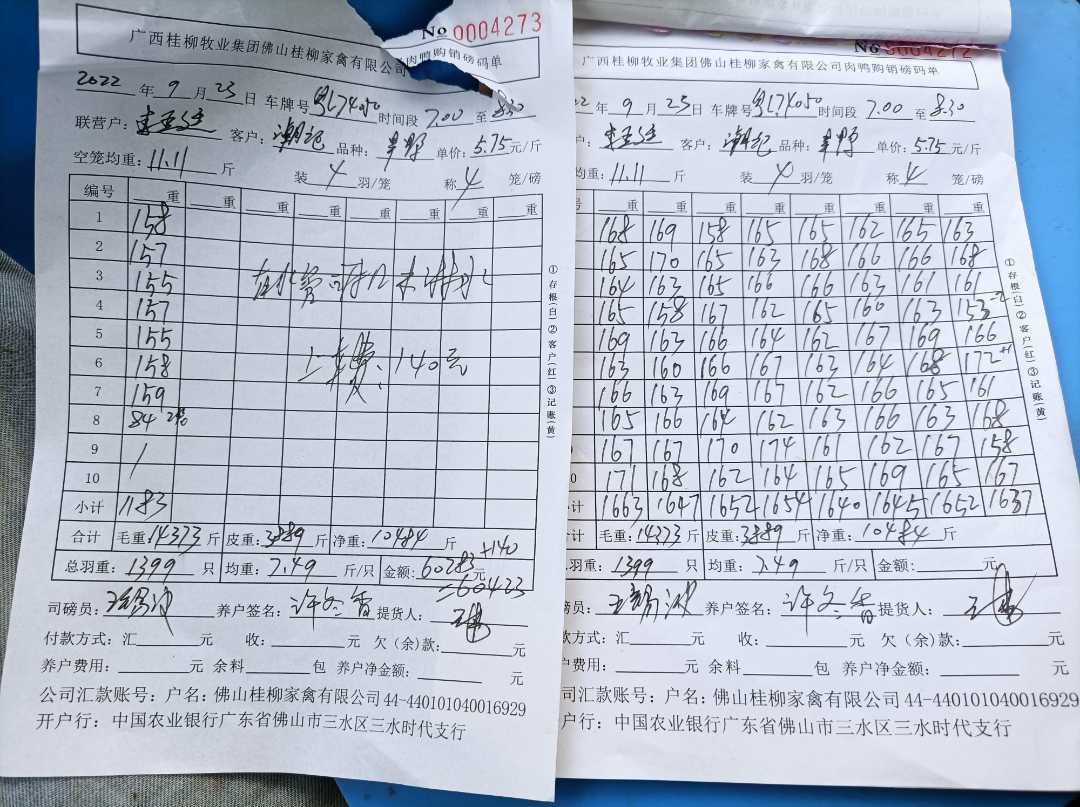 No 0004273
广西桂柳牧业集团佛山桂柳家禽有限公司肉鸭购销磅码单
2022年9月25日 车牌号粤L74050时间段7.00至8.30
联营户: 客户:潮记 品种: 单价:5.75元/斤
空笼均重:11.11斤 装4羽/笼 称4笼/磅
编号 重 重 重 重 重 重 重 重
1 158
2 157
3 155
4 157
5 155
6 158
7 159
8 84 2笼
9 /
10
上车费:140元
小计 1183
合计 毛重:14373斤 皮重:3889斤 净重:10484斤
总羽重:1399只 均重:7.49斤/只 金额:60283元 +140
=60423
司磅员: 养户签名:许冬香 提货人:
付款方式:汇 元 收: 元 欠(余)款: 元
养户费用: 元 余料 包 养户净金额: 元
公司汇款账号:户名:佛山桂柳家禽有限公司44-440101040016929
开户行:中国农业银行广东省佛山市三水区三水时代支行
①存根(白)②客户(红)③记账(黄)
No 0004272
广西桂柳牧业集团佛山桂柳家禽有限公司肉鸭购销磅码单
年9月25日 车牌号粤L74050时间段7.00至8.30
户: 客户:潮记 品种: 单价:5.75元/斤
均重:11.11斤 装4羽/笼 称4笼/磅
号 重 重 重 重 重 重 重 重
168 169 158 165 165 162 165 163
165 170 165 163 168 166 166 168
164 163 165 166 166 163 161 161
165 158 167 162 165 160 163 153-2
169 163 166 164 162 167 169 166
163 160 166 167 163 164 168 172+1
166 163 169 167 162 166 165 161
165 166 164 162 163 166 163 168
167 167 170 174 161 162 167 158
0 171 168 162 164 165 169 165 167
计 1663 1647 1652 1654 1640 1645 1652 1637
合计 毛重:14373斤 皮重:3889斤 净重:10484斤
总羽重:1399只 均重:7.49斤/只 金额: 元
磅员: 养户签名:许冬香 提货人:
款方式:汇 元 收: 元 欠(余)款: 元
户费用: 元 余料 包 养户净金额: 元
司汇款账号:户名:佛山桂柳家禽有限公司44-440101040016929
户行:中国农业银行广东省佛山市三水区三水时代支行
①存根(白)②客户(红)③记账(黄)